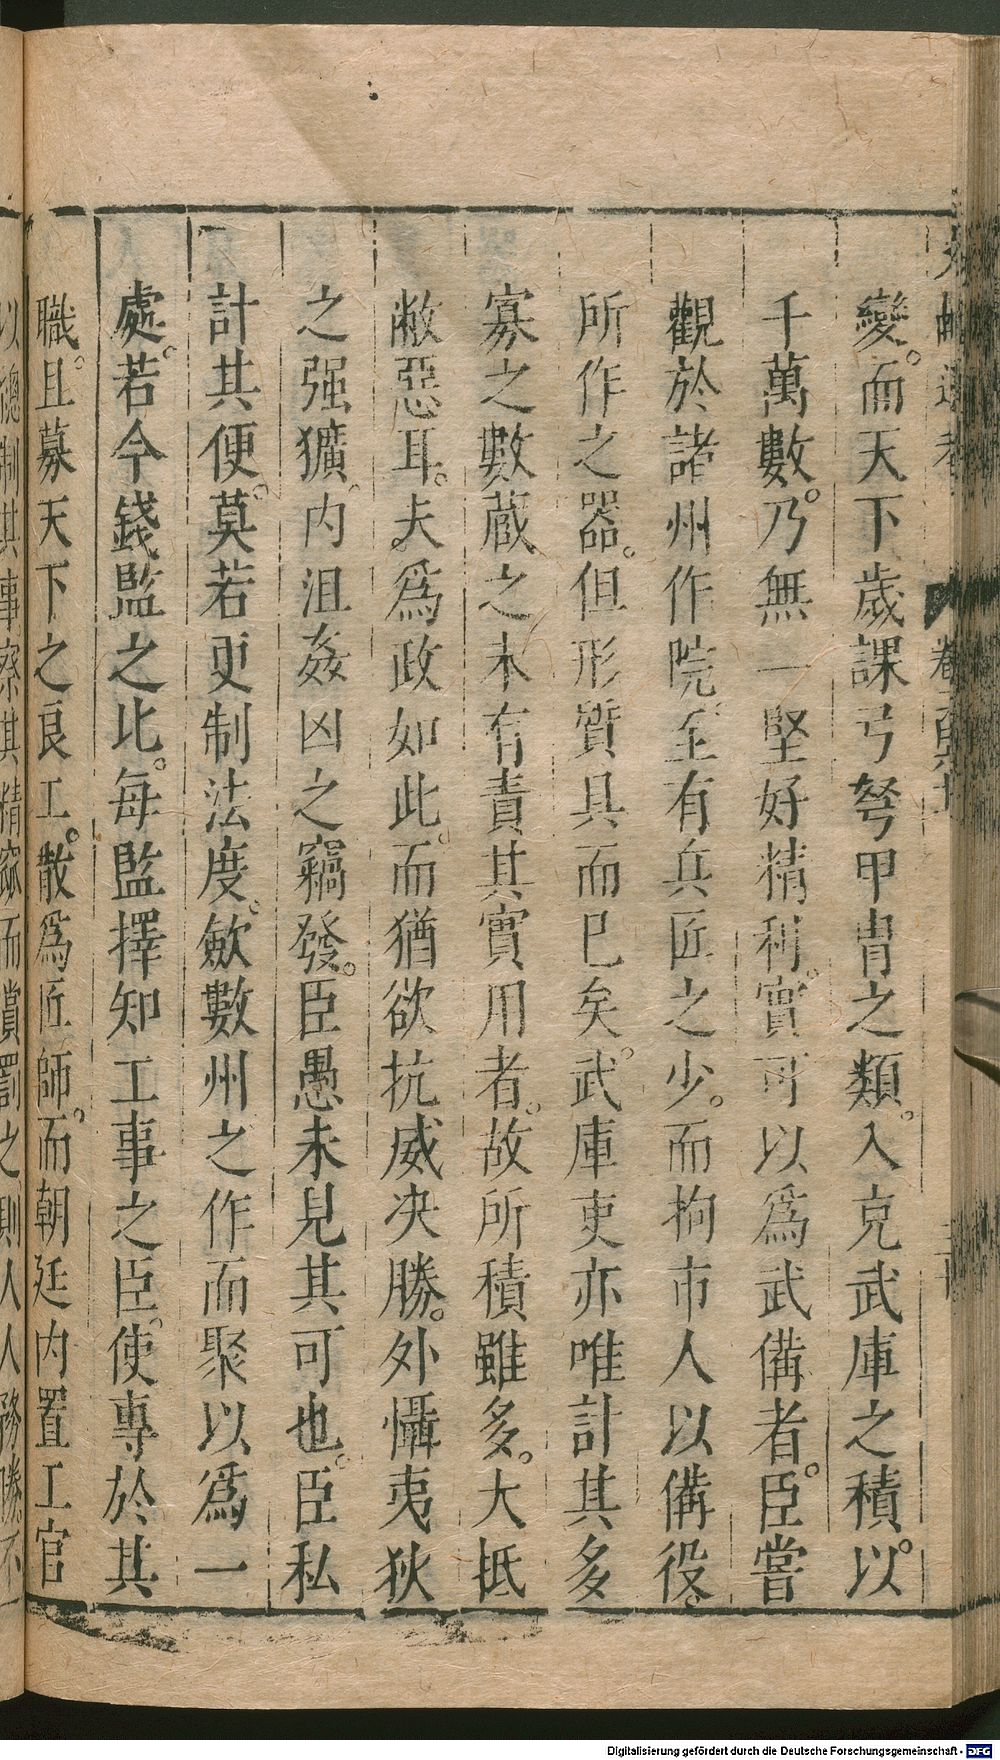 變。而天下歲課弓弩甲胄之類。入克武庫之積。以
千萬數。乃無一堅好精利。實可以爲武備者。臣嘗
觀於諸州作院。至有兵匠之少。而拘市人以備役。
所作之器。但形質具而巳矣。武庫吏亦唯計其多
寡之數藏之未有責其實用者。故所積雖多。大抵
敝惡耳。夫爲政如此。而猶欲抗威决勝。外懾夷狄
之强獷。内沮姦凶之竊發。臣愚未見其可也。臣私
計其便。莫若更制法度。歛數州之作而聚以爲一
處。若今錢監之比。每監擇知工事之臣。使專於其
職。且募天下之良工。散爲匠師。而朝廷内置工官
以總制其事察其精窳而賞罰之則人人務勝。不
Digitalisierung gefördert durch die Deutsche Forschungsgemeinschaft - DFG